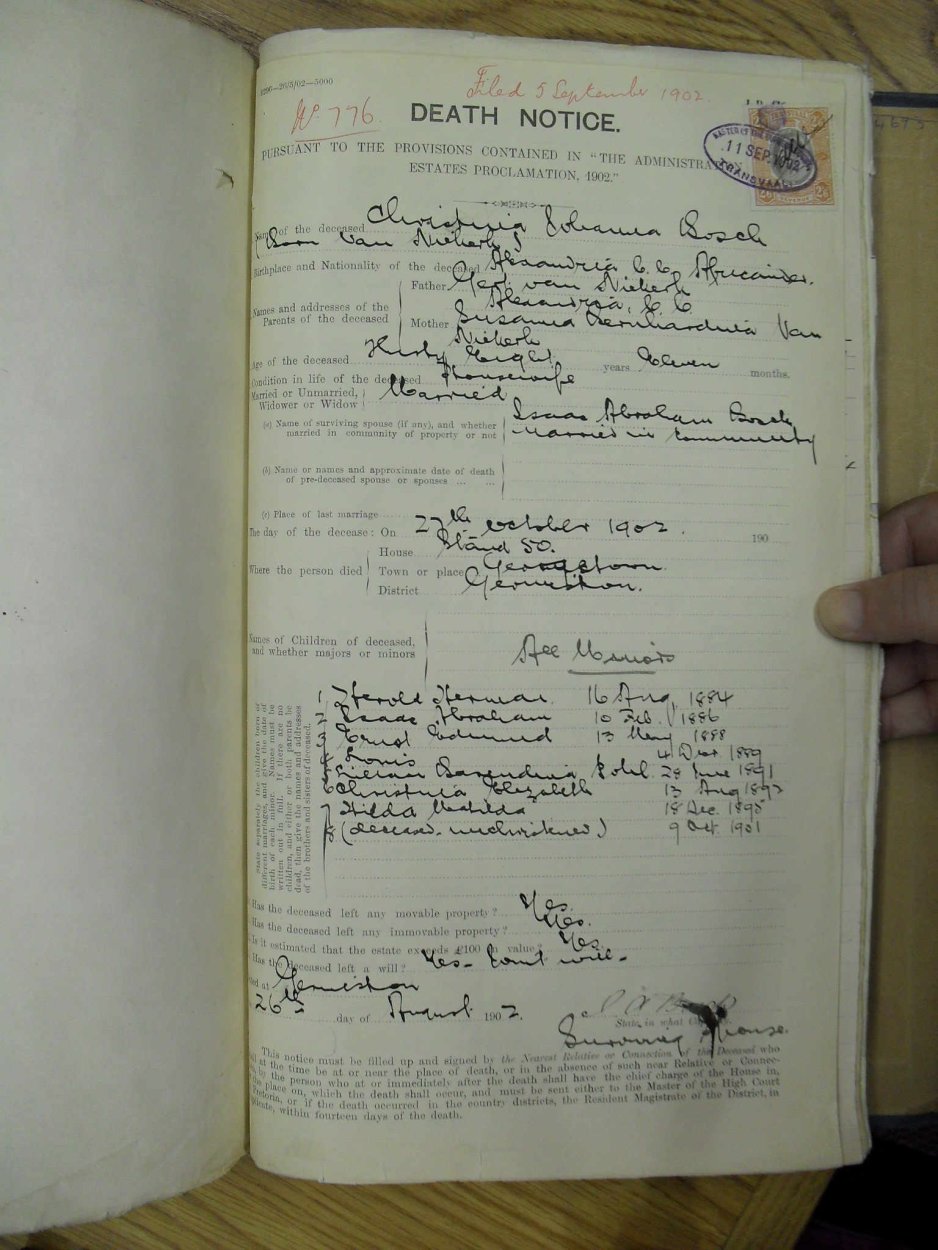 1296—26/5/02—5000
Filed 5 September 1902.
No 776.
DEATH NOTICE.
PURSUANT TO THE PROVISIONS CONTAINED IN "THE ADMINISTRATION
ESTATES PROCLAMATION, 1902."
11 SEP. 1902
TRANSVAAL
Name of the deceased Christina Johanna Bosch
(Born Van Niekerk)
Birthplace and Nationality of the deceased Alexandria C.C. Africander.
Names and addresses of the Parents of the deceased
Father Gert van Niekerk
Alexandria, C.C
Mother Susanna Bernhardina Van
Niekerk
Age of the deceased Thirty Eight years Eleven months.
Condition in life of the deceased Housewife
Married or Unmarried, Widower or Widow Married
(a) Name of surviving spouse (if any), and whether married in community of property or not
Isaac Abraham Bosch
married in Community
(b) Name or names and approximate date of death
of pre-deceased spouse or spouses ... ...
(c) Place of last marriage
The day of the decease: On 27th October 1902. 190
Where the person died
House Stand 50.
Town or place Georgetown.
District Germiston.
Names of Children of deceased,
and whether majors or minors
All Minors
State separately the children born of
different marriages, and give the date of
birth of each minor. Names must be
written out in full. If there are no
children, and either or both parents be
dead, then give the names and addresses
of the brothers and sisters of deceased.
1 Herold Herman 16 Aug. 1884
2 Isaac Abraham 10 Feb. 1886
3 Ernst Edmund 13 May 1888
4 Louis 4 Dec 1889
5 Lilian 28 June 1891
6 Christina Elizabeth 13 Aug 1892
7 Hilda Mathilda 18 Dec. 1895
8 (deceased unchristened) 9 Oct. 1901
Has the deceased left any movable property? Yes.
Has the deceased left any immovable property? Yes.
Is it estimated that the estate exceeds £100 in value? Yes.
Has the deceased left a will? Yes - Joint will -
Dated at Germiston
26th day of August 1902.
I A Bosch
State in what
Surviving Spouse.
This notice must be filled up and signed by the Nearest Relative or Connection of the Deceased who
at the time be at or near the place of death, or in the absence of such near Relative or Connec-
by the person who at or immediately after the death shall have the chief charge of the House in,
place on, which the death shall occur, and must be sent either to the Master of the High Court
Pretoria, or if the death occurred in the country districts, the Resident Magistrate of the District, in
within fourteen days of the death.